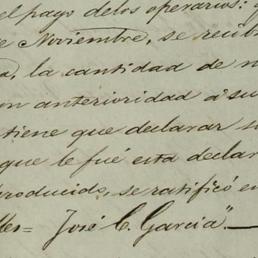 el pago de los operarios:
Noviembre, se recibi
la cantidad de
anterioridad a su
tiene que declarar
que le fué esta declar
producido, se ratificó en
José C. Garcia".